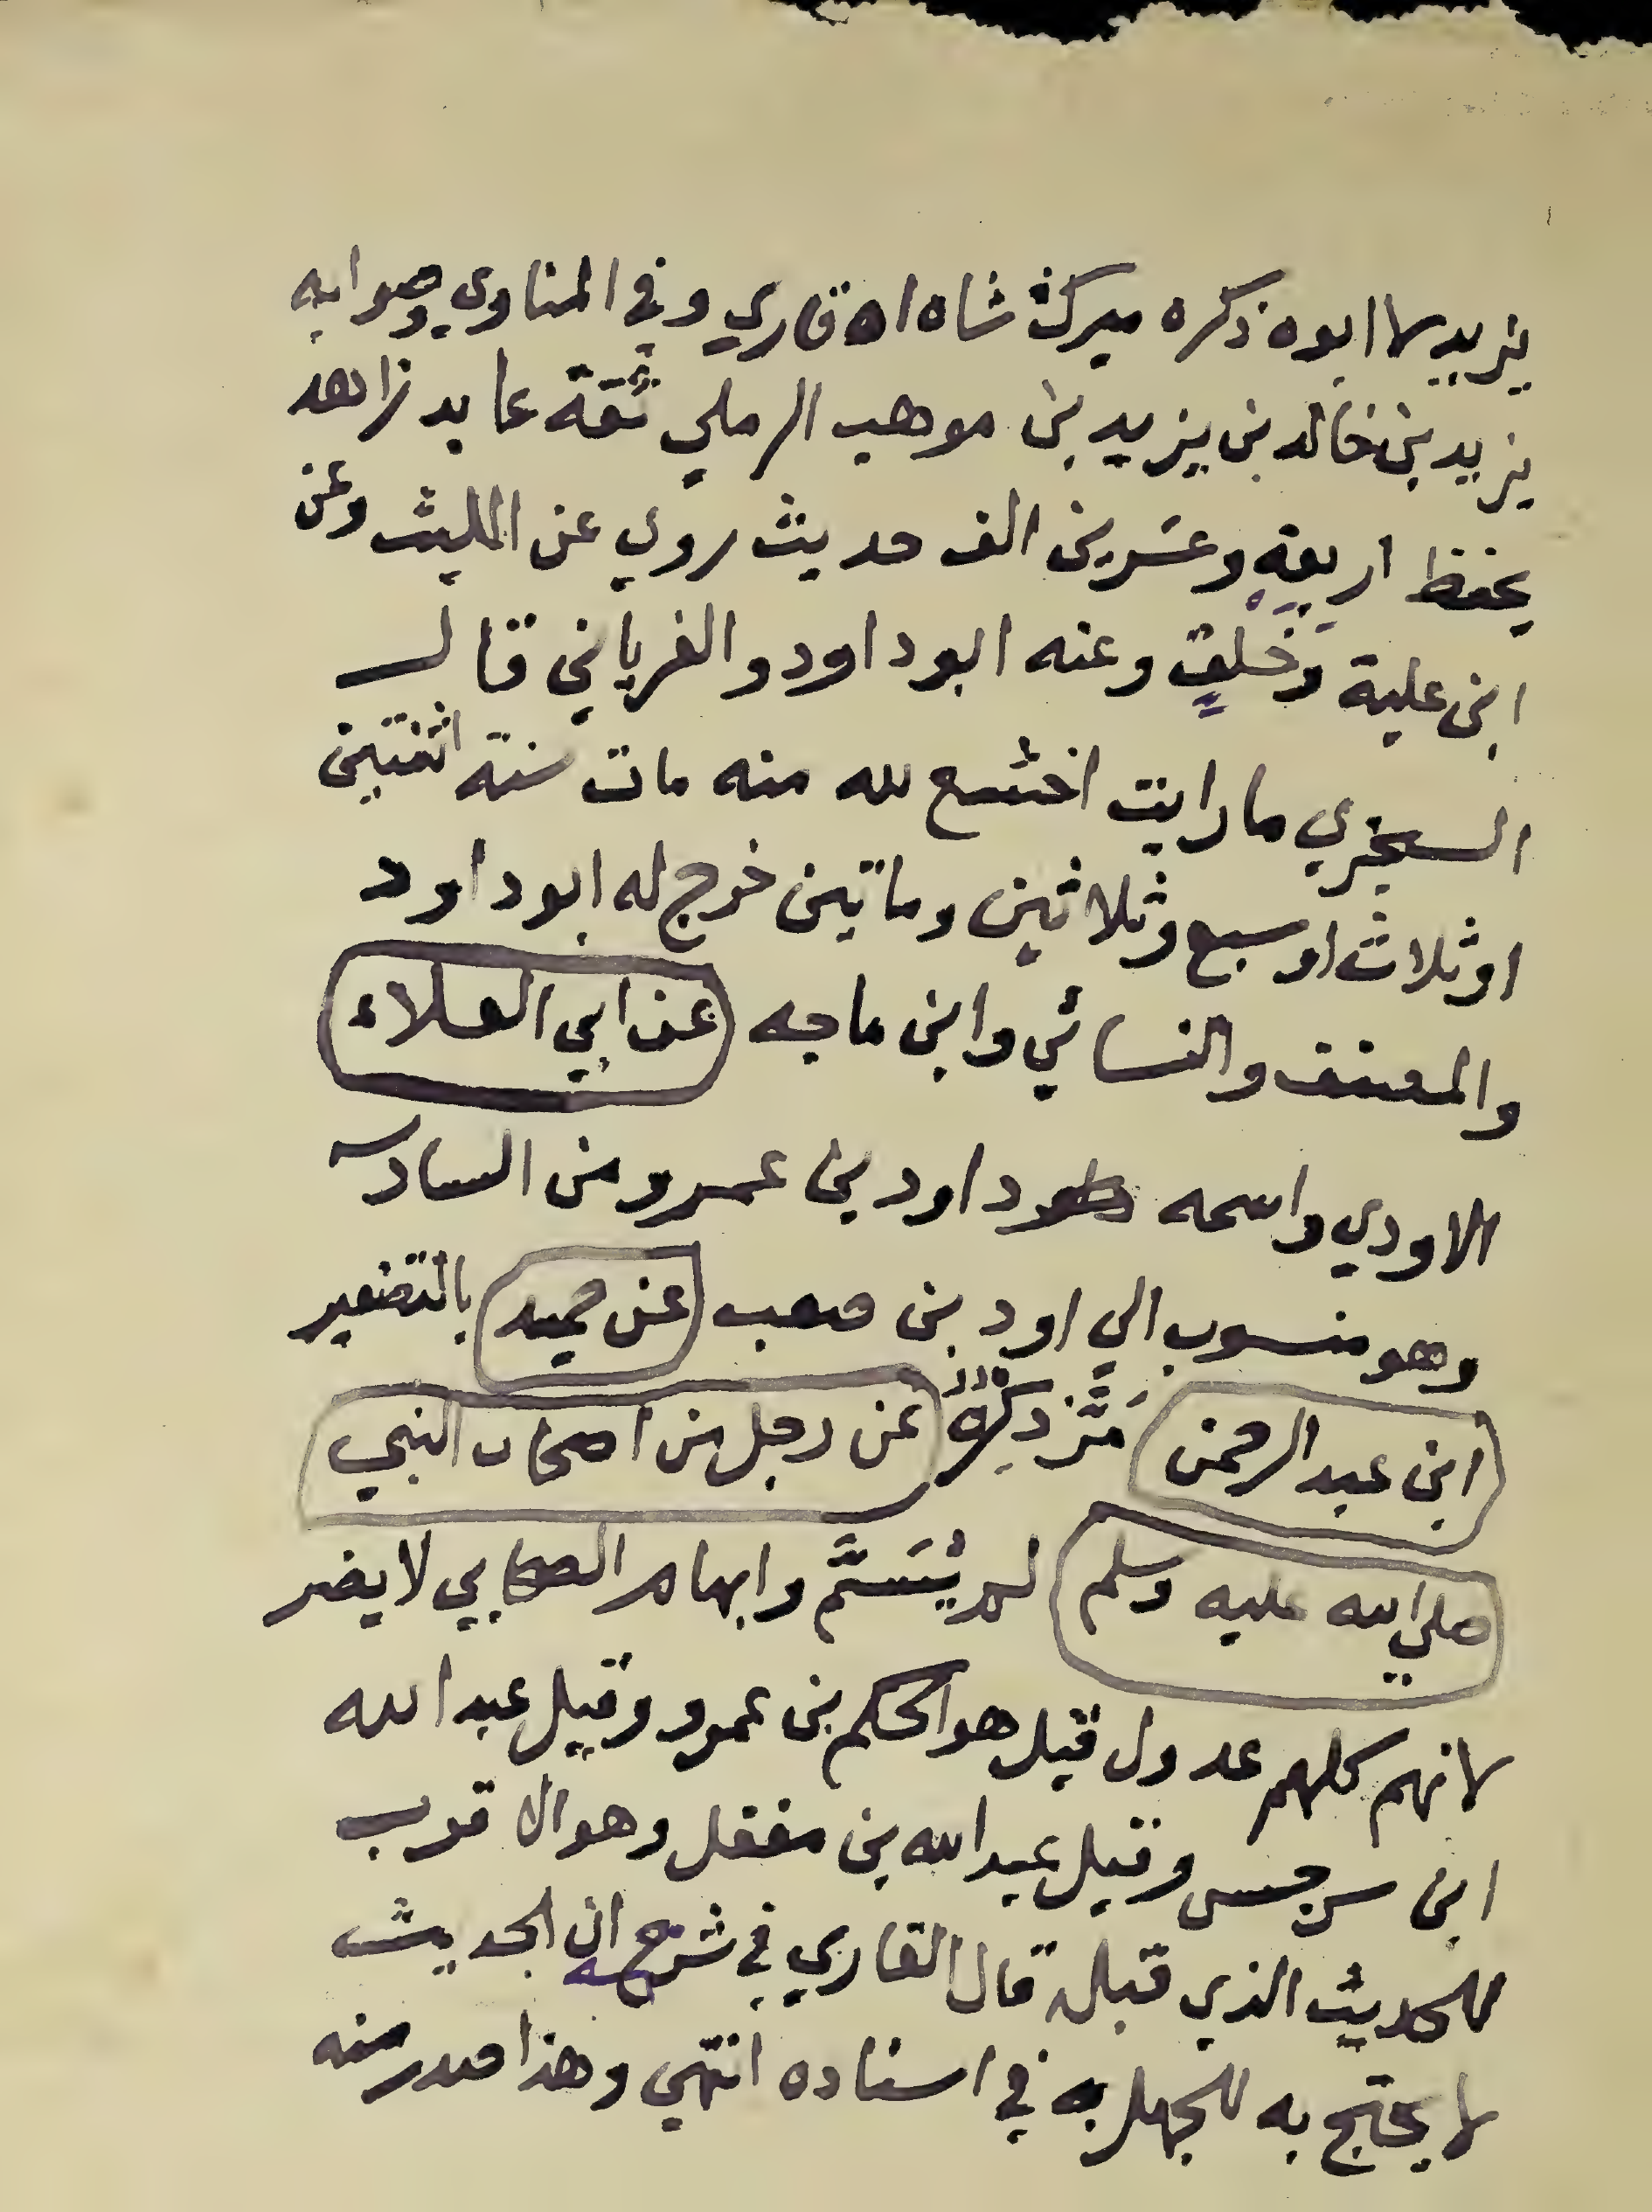 يزيد لا ابوه ذكره ميرك شاه اه قاري وفي المناوي وصوابه
يزيد بن خالد بن يزيد بن موهب الرملي ثقة عابد زاهد
يحفظ اربعة وعشرين الف حديث روي عن الليث وعن
ابن علية وخلق وعنه ابوداود والفرياني قال
السجزي ما رايت اخشع لله منه مات سنة اثنتين
او ثلاث او سبع وثلاثين وماتين خرج له ابوداود
والمصنف والنسائي وابن ماجه عن ابي العلاء
الاودي واسمه داود بن عمرو من السادسه
وهو منسوب الي اود بن صعب عن حميد بالتصغير
ابن عبد الرحمن مر ذكره عن رجل من اصحاب النبي
صلي الله عليه وسلم لم يسم وابهام الصحابي لا يضر
لانهم كلهم عدول قيل هو الحكم بن عمرو وقيل عبد الله
ابن سرجس وقيل عبد الله بن مغفل وهو الاقرب
للحديث الذي قبله قال القاري في شرحه ان الحديث
لا يحتج به للجهل به في اسناده انتهي وهذا صدر منه